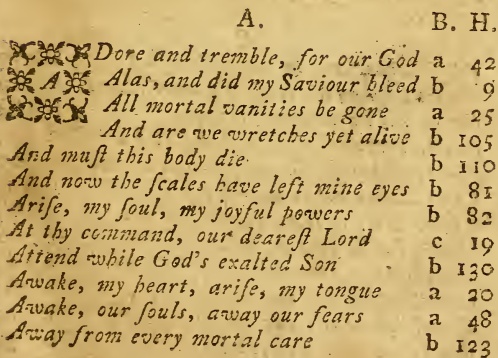 A. B. H.
ADore and tremble, for our God a 42
Alas, and did my Saviour bleed b 9
All mortal vanities be gone a 25
And are we wretches yet alive b 105
And muſt this body die b 110
And now the ſcales have left mine eyes b 81
Ariſe, my ſoul, my joyful powers b 82
At thy command, our deareſt Lord c 19
Attend while God's exalted Son b 130
Awake, my heart, ariſe, my tongue a 20
Awake, our ſouls, away our fears a 48
Away from every mortal care b 123